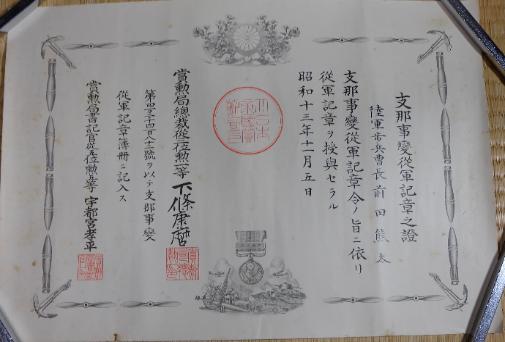 支那事變從軍記章之證
陸軍步兵曹長 前田熊太
支那事變從軍記章令ノ旨ニ依リ
從軍記章ヲ授與セラル
昭和十三年十一月五日
賞勲局總裁從位勲一等 下條康麿
第 號ヲ以テ支那事變
從軍記章簿册ニ記入ス
賞勲局書記官從位勲等 宇都宮孝平